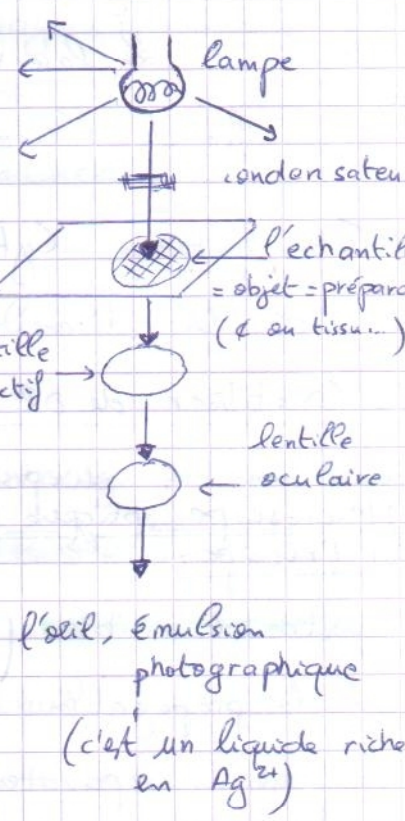 lampe
condensateu
l'échantil
= objet = prépara
(¢ ou tissu...)
tille
ctif
lentille
oculaire
l'œil, émulsion
photographique
(c'est un liquide riche
en Ag²⁺)